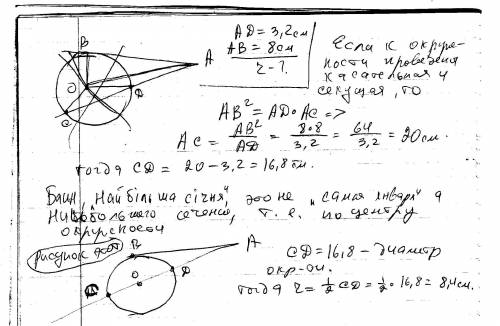 B
A
O
D
C
AD = 3,2 см
AB = 8 см
r - ?
Если к окруж-
ности проведена
касательная и
секущая, то
AB² = AD · AC =>
AC = AB²/AD = 8·8/3,2 = 64/3,2 = 20 см.
тогда CD = 20 - 3,2 = 16,8 см.
"Найбільша січня", это не "самая января" а
сечение, т. е. по центру
окружности
рисунок
B
A
O
D
CD = 16,8 - диаметр
окр-ти.
тогда r = ½ CD = ½ · 16,8 = 8,4 см.